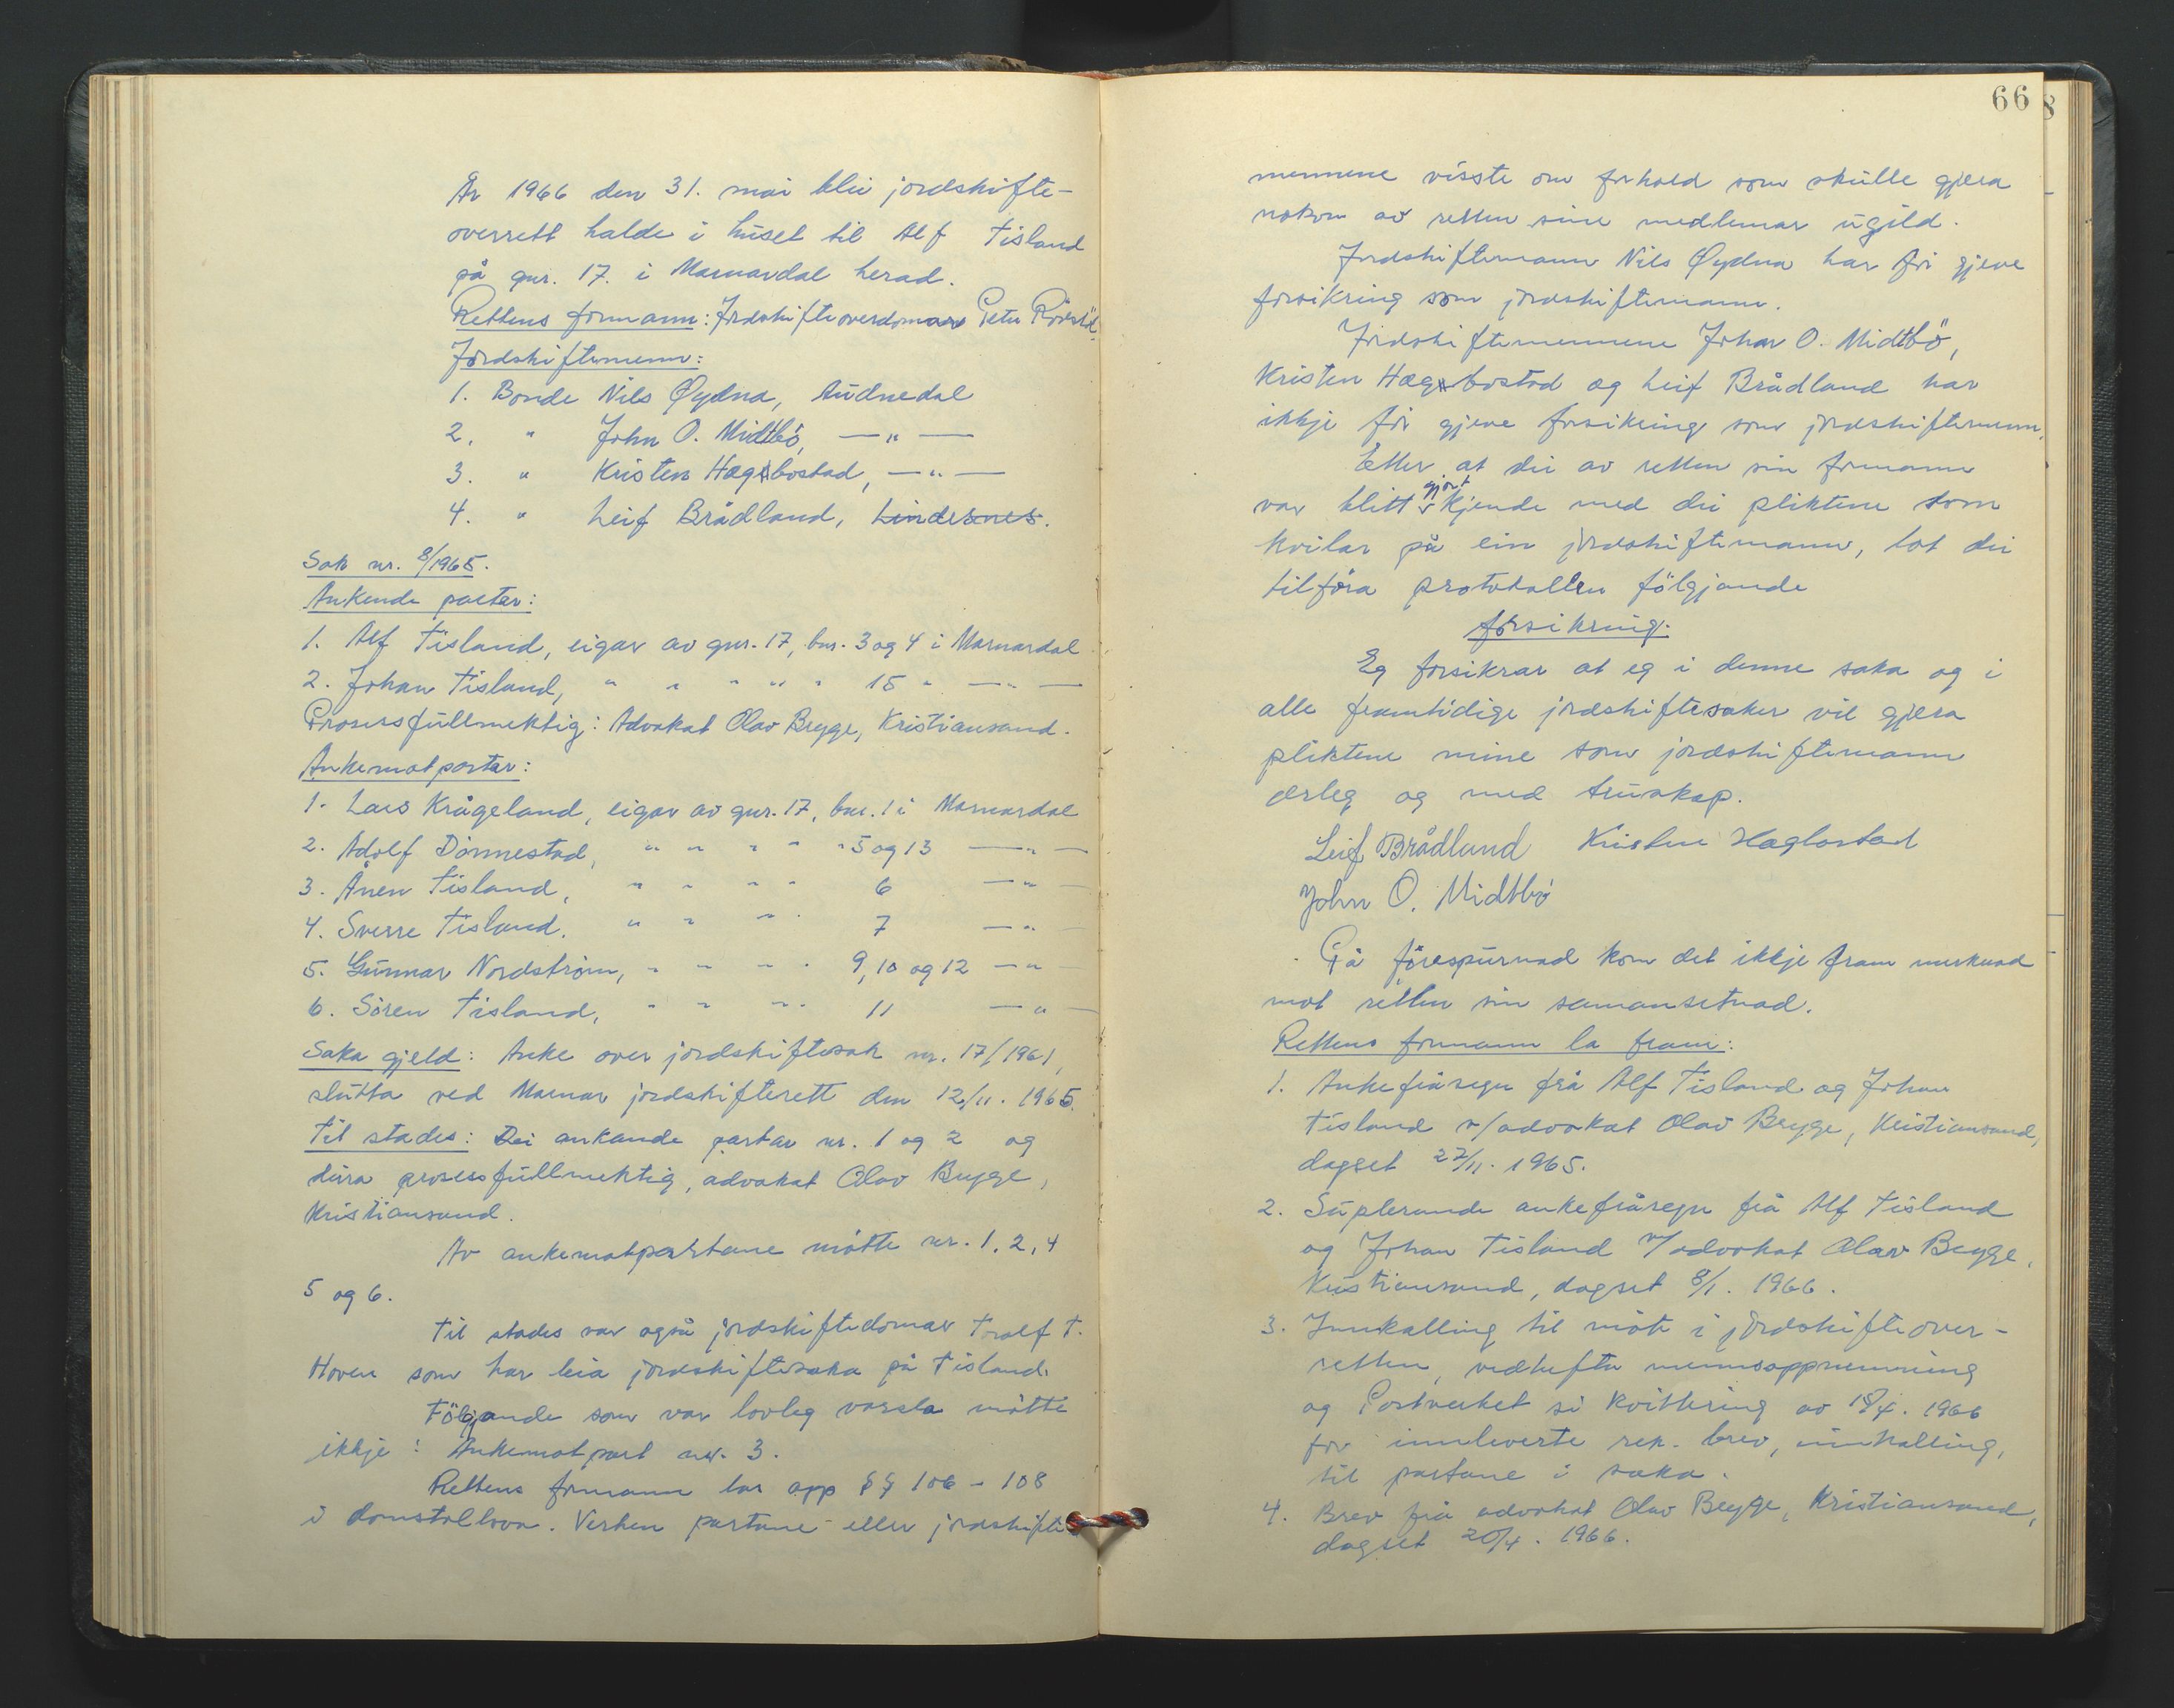 År 1966 den 31. mai blei jordskifte-
overrett halde i huset til Alf Tisland
på gnr. 17. i Marnardal herad.
Rettens formann: Jordskifteoverdomar Peter
Jordskiftemenn:
1. Bonde Nils Øydna, Audnedal
2. " John O. Midtbö, —"—
3. " Kristen Hægbostad, —"—
4. " Leif Brådland, Lindesnes.
Sak nr. 8/1965.
Ankende partar:
1. Alf Tisland, eigar av gnr. 17, bnr. 3 og 4 i Marnardal
2. Johan Tisland, " " " " " 15 " —"—
Prosessfullmektig: Advokat Olav Brygge, Kristiansand.
Ankemotpartar:
1. Lars Krågeland, eigar av gnr. 17, bnr. 1 i Marnardal
2. Adolf Dönnestad, " " " " " 5 og 13 —"—
3. Ånen Tisland, " " " " 6 —"—
4. Sverre Tisland. " " " " 7 —"—
5. Gunnar Nordström, " " " " 9, 10 og 12 —"—
6. Sören Tisland, " " " " 11 —"—
Saka gjeld: Anke over jordskiftesak nr. 17/1961,
slutta ved Marnar jordskifterett den 12/11. 1965.
Til stades: Dei ankande partar nr. 1 og 2 og
deira prosessfullmektig, advokat Olav Brygge,
Kristiansand.
Av ankemotpartane mötte nr. 1, 2, 4
5 og 6.
Til stades var også jordskiftedomar Tralf T.
Hoven som har leia jordskiftesaka på Tisland.
Fölgjande som var lovleg varsla mötte
ikkje: Ankemotpart nr. 3.
Rettens formann las opp §§ 106 - 108
i domstollova. Verken partane eller jordskifte
66
mennene visste om forhold som skulle gjera
nokon av retten sine medlemar ugild.
Jordskiftemann Nils Øydna har för gjeve
forsikring som jordskiftemann.
Jordskiftemennene Johan O. Midtbö,
Kristen Hægbostad og Leif Brådland har
ikkje för gjeve forsikring som jordskiftemenn.
Etter at dei av retten sin formann
var blitt gjort kjende med dei pliktene som
kvilar på ein jordskiftemann, lot dei
tilföra protokollen fölgjande
forsikring:
Eg forsikrar at eg i denne saka og i
alle framtidige jordskiftesaker vil gjera
pliktene mine som jordskiftemann
ærleg og med truskap.
Leif Brådland Kristen Hægbostad
John O. Midtbö
På förespurnad kom det ikkje fram merknad
mot retten sin samansetnad.
Rettens formann la fram:
1. Ankefråsegn frå Alf Tisland og Johan
Tisland v/advokat Olav Brygge, Kristiansand,
dagset 27/11. 1965.
2. Suplerande ankefråsegn frå Alf Tisland
og Johan Tisland v/advokat Olav Brygge,
Kristiansand, dagset 8/1. 1966.
3. Innkalling til möte i jordskifteover-
retten, vedhefta mennsoppnemning
og Postverket si kvittering av 18/4. 1966
for innleverte rek. brev, innkalling,
til partane i saka.
4. Brev frå advokat Olav Brygge, Kristiansand,
dagset 20/4. 1966.